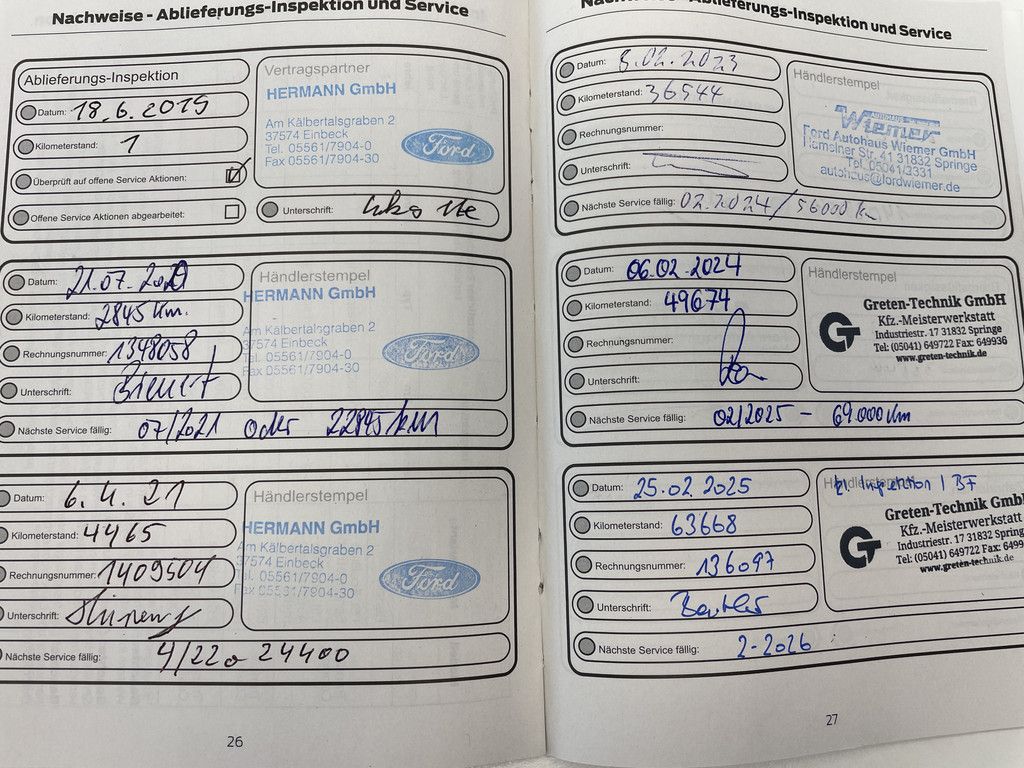 Nachweise - Ablieferungs-Inspektion und Service
Ablieferungs-Inspektion
Datum: 18.6.2019
Kilometerstand: 1
Überprüft auf offene Service Aktionen:
Offene Service Aktionen abgearbeitet:
Vertragspartner
HERMANN GmbH
Am Kälbertalsgraben 2
37574 Einbeck
Tel. 05561/7904-0
Fax 05561/7904-30
Ford
Unterschrift:
Datum: 21.07.2020
Kilometerstand: 2845 Km.
Rechnungsnummer: 1348058
Unterschrift:
Nächste Service fällig: 07/2021 oder 22845/km
Händlerstempel
HERMANN GmbH
Am Kälbertalsgraben 2
37574 Einbeck
Tel. 05561/7904-0
Fax 05561/7904-30
Ford
Datum: 6.4.21
Kilometerstand: 4465
Rechnungsnummer: 1409504
Unterschrift:
Nächste Service fällig: 4/22 o 24400
Händlerstempel
HERMANN GmbH
Am Kälbertalsgraben 2
37574 Einbeck
Tel. 05561/7904-0
Fax 05561/7904-30
Ford
26
Ablieferungs-Inspektion und Service
Datum: 8.02.2023
Kilometerstand: 36544
Rechnungsnummer:
Unterschrift:
Nächste Service fällig: 02.2024/56000 km
Händlerstempel
AUTOHAUS
Wiemer
Ford Autohaus Wiemer GmbH
Hamelner Str. 41 31832 Springe
Tel. 05041/2331
autohaus@fordwiemer.de
Datum: 06.02.2024
Kilometerstand: 49674
Rechnungsnummer:
Unterschrift:
Nächste Service fällig: 02/2025 - 69.000 km
Händlerstempel
GT
Greten-Technik GmbH
Kfz.-Meisterwerkstatt
Industriestr. 17 31832 Springe
Tel: (05041) 649722 Fax: 649936
www.greten-technik.de
Datum: 25.02.2025
Kilometerstand: 63668
Rechnungsnummer: 136097
Unterschrift:
Nächste Service fällig: 2-2026
Händlerstempel
kl. Inspektion / BF
GT
Greten-Technik GmbH
Kfz.-Meisterwerkstatt
Industriestr. 17 31832 Spring
Tel: (05041) 649722 Fax: 6499
www.greten-technik.de
27